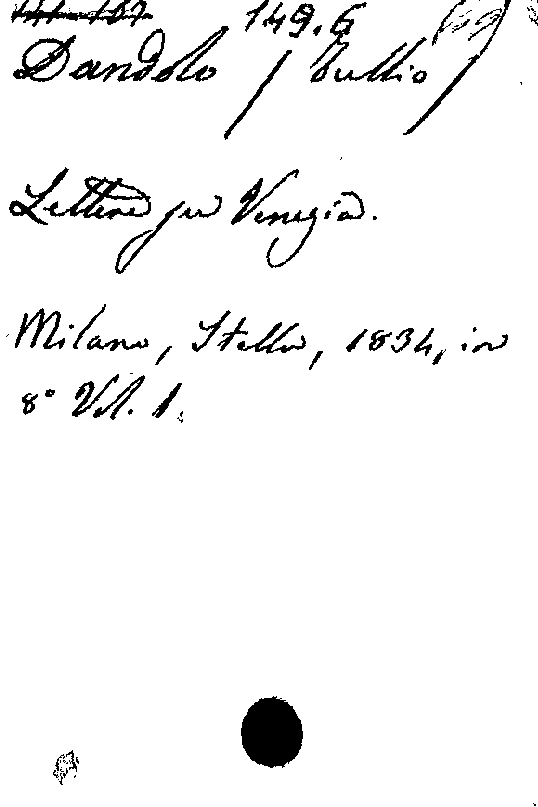 149.6
Dandolo / Tullio /
Lettere su Venezia.
Milano, Stella, 1834, in
8° Vol. 1.